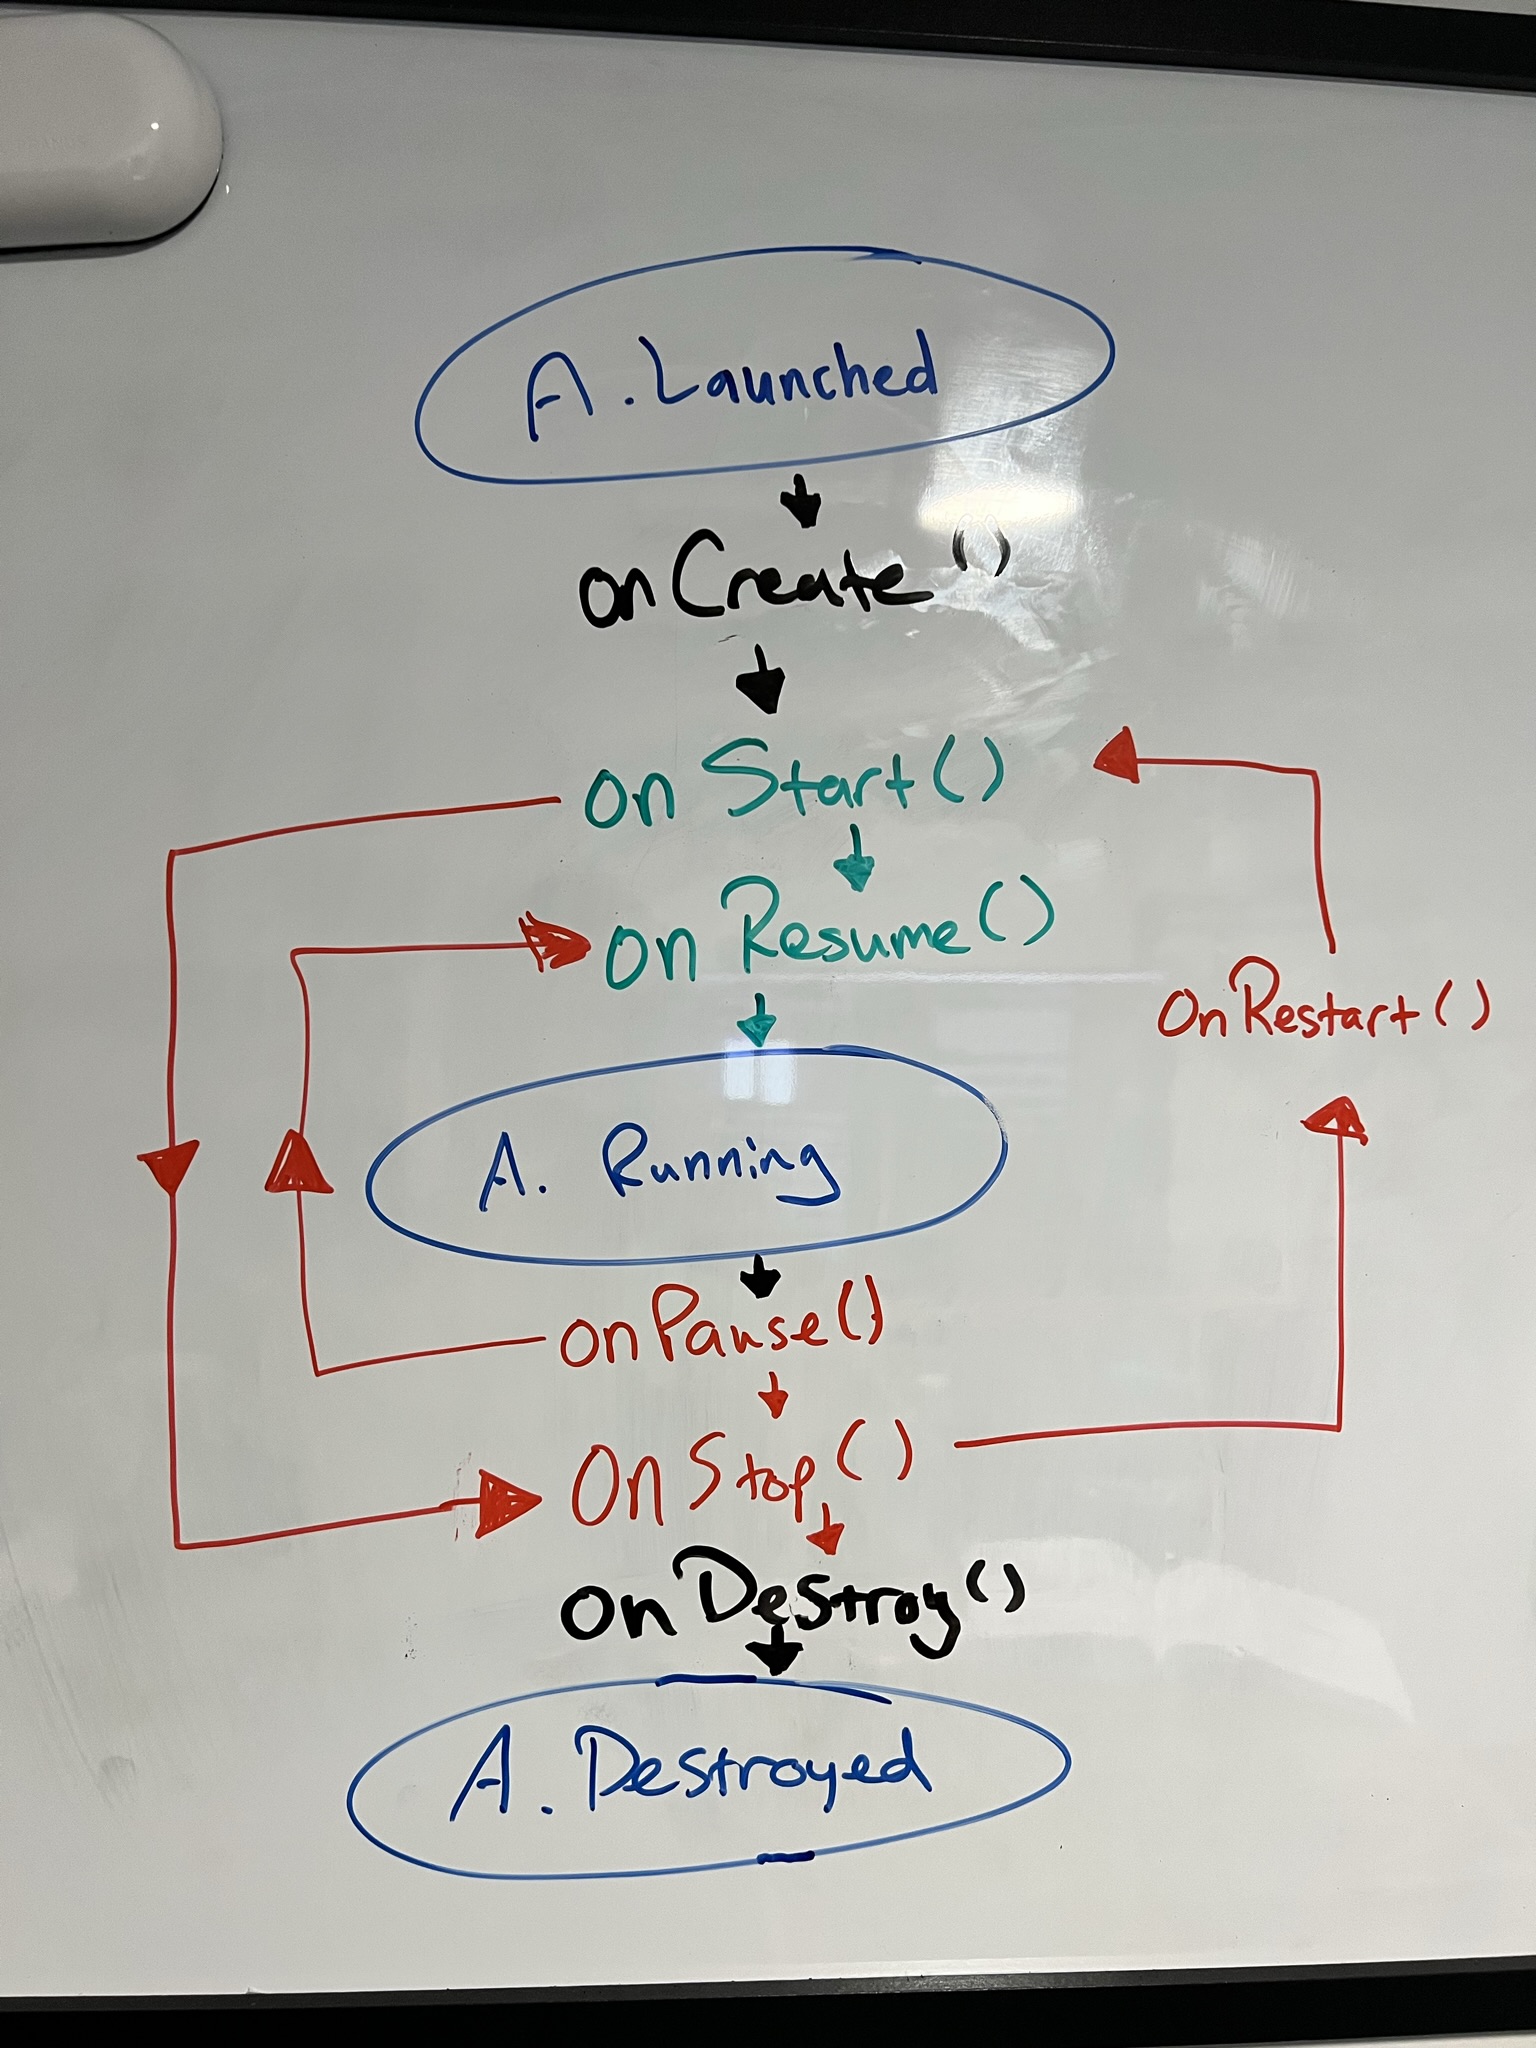 A. Launched
onCreate()
on Start()
on Resume()
OnRestart()
A. Running
onPause()
OnStop()
onDestroy()
A. Destroyed